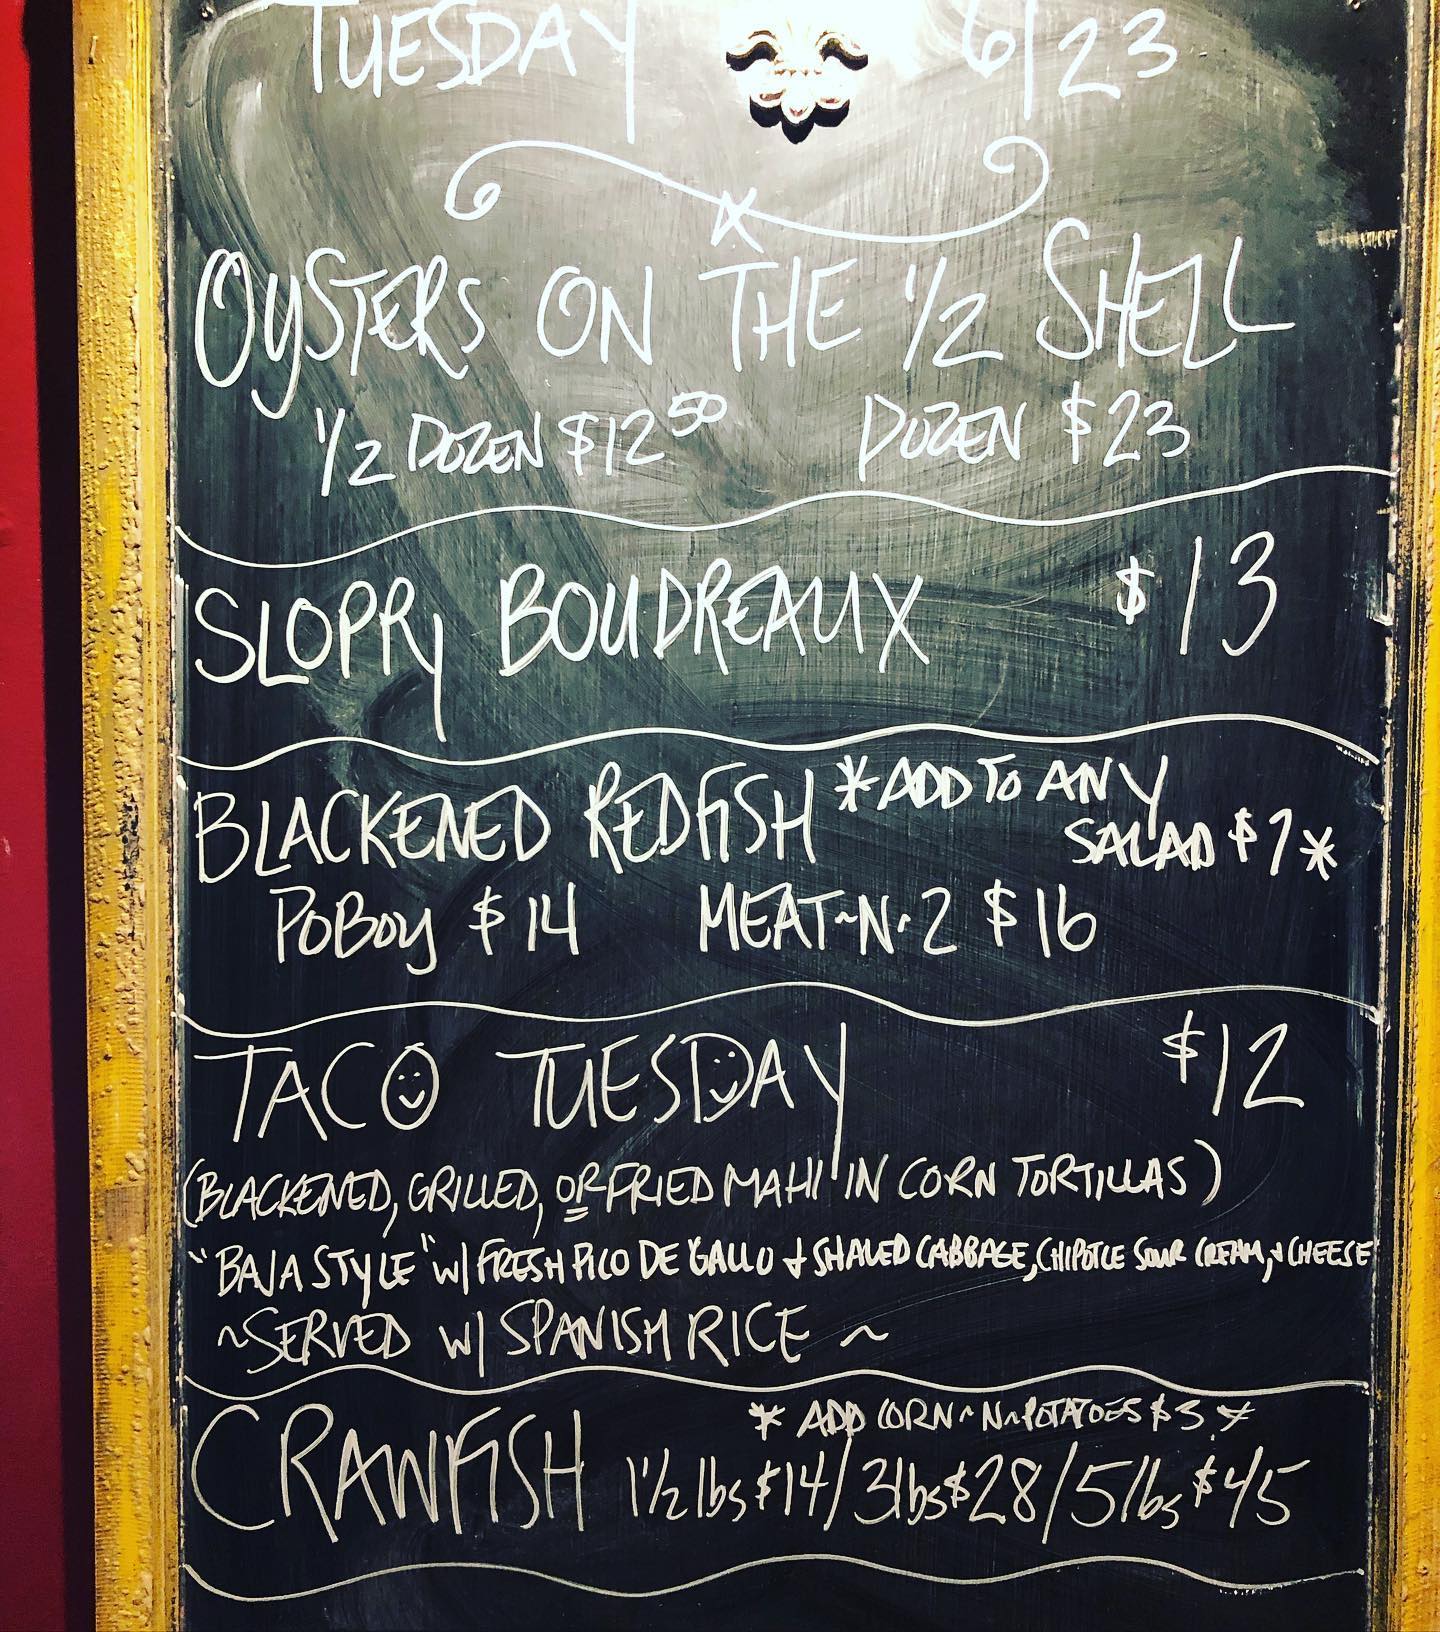 TUESDAY 6/23
OYSTERS ON THE 1/2 SHELL
1/2 DOZEN $12 50 DOZEN $23
SLOPPY BOUDREAUX $13
BLACKENED REDFISH *ADD TO ANY
SALAD $7*
POBOY $14 MEAT~N~2 $16
TACO TUESDAY $12
(BLACKENED, GRILLED, OR FRIED MAHI IN CORN TORTILLAS)
"BAJA STYLE" W/ FRESH PICO DE GALLO + SHAVED CABBAGE, CHIPOTLE SOUR CREAM, + CHEESE
~SERVED W/ SPANISH RICE ~
* ADD CORN~N~POTATOES $3 *
CRAWFISH 1 1/2 lbs $14/3lbs $28/5lbs $45